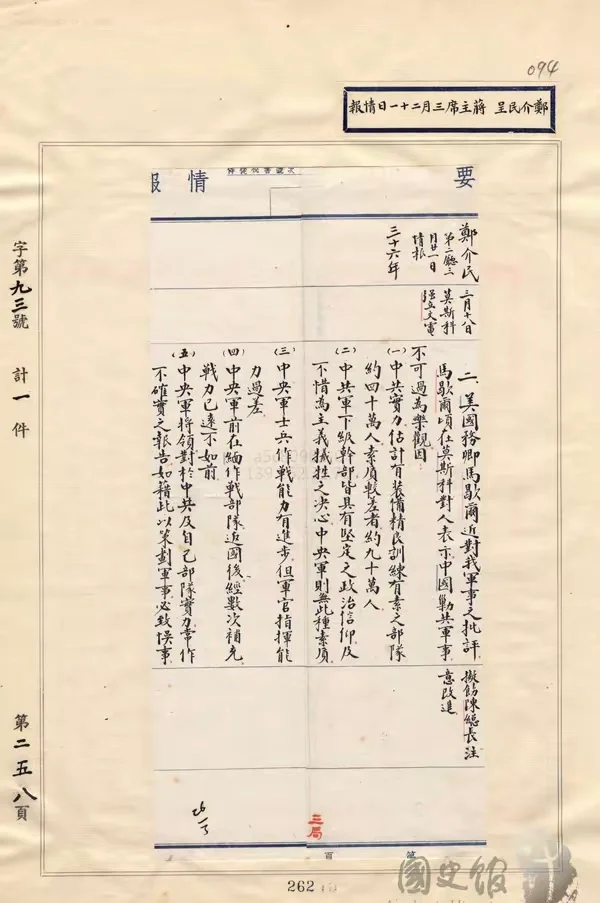 094
鄭介民呈 蔣主席三月二十一日情報
要情報
鄭介民
第二廳三
月廿一日
情報
三十六年
三月十八日
莫斯科
文電
二、美國務卿馬歇爾近對我軍事之批評
馬歇爾頃在莫斯科對人表示中國剿共軍事
不可過為樂觀因
(一)中共實力估計有裝備精良訓練有素之部隊
約四十萬人素質較差者約九十萬人
(二)中共軍下級幹部皆具有堅定之政治信仰及
不惜為主義犧牲之決心中央軍則無此種素質
(三)中央軍士兵作戰能力有進步但軍官指揮能
力過差
(四)中央軍前在緬作戰部隊返國後經數次補充
戰力已遠不如前
(五)中央軍將領對於中共及自己部隊實力常作
不確實之報告如藉此以策劃軍事必致悞事
擬飭陳總長注
意改進
三局
第 頁
字第九三號 計一件
第二五八頁
262
國史館